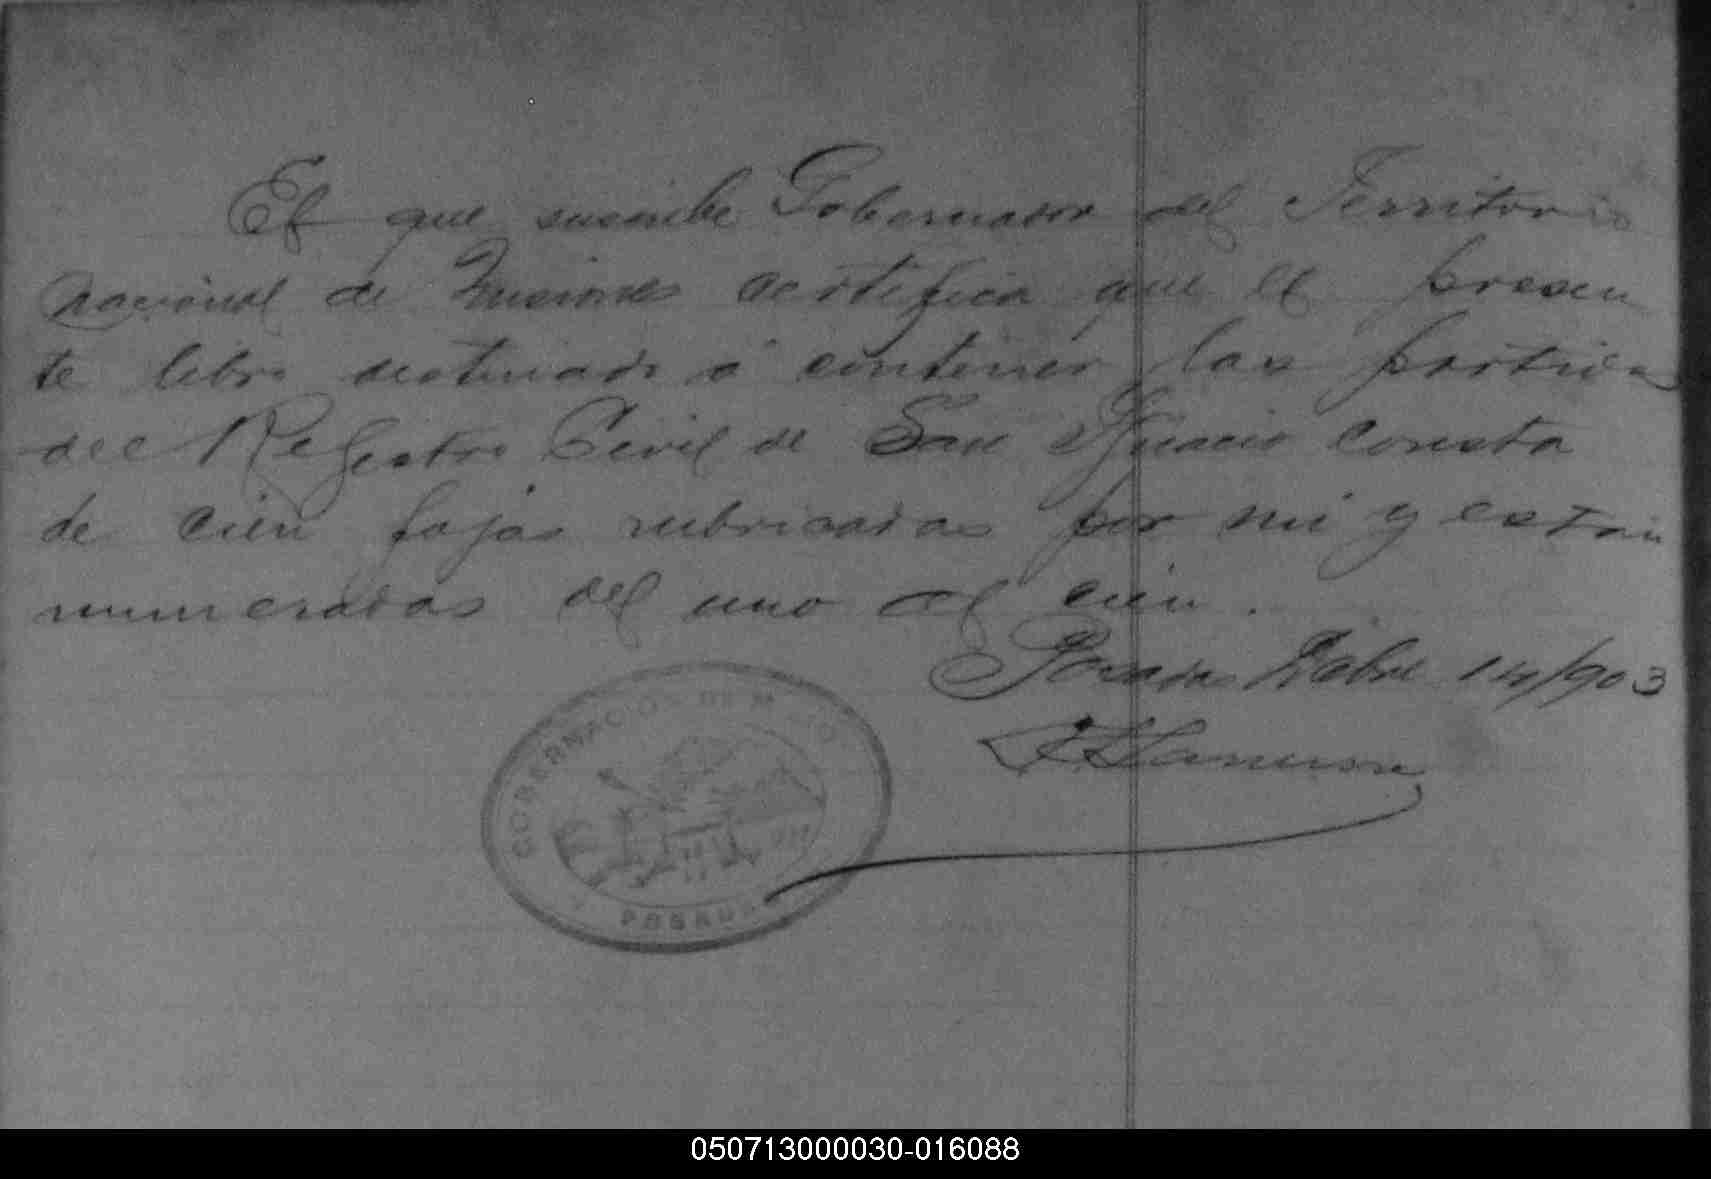 El que suscribe Gobernador del Territorio
nacional de Misiones certifica que el presen
te libro destinado á contener las partidas
del Registro Civil de San Ignacio consta
de cien fojas rubricadas por mi y estan
numeradas del uno al cien.
Posadas Dbre 14/903
GOBERNACION DE MISIO
POSADAS
050713000030-016088